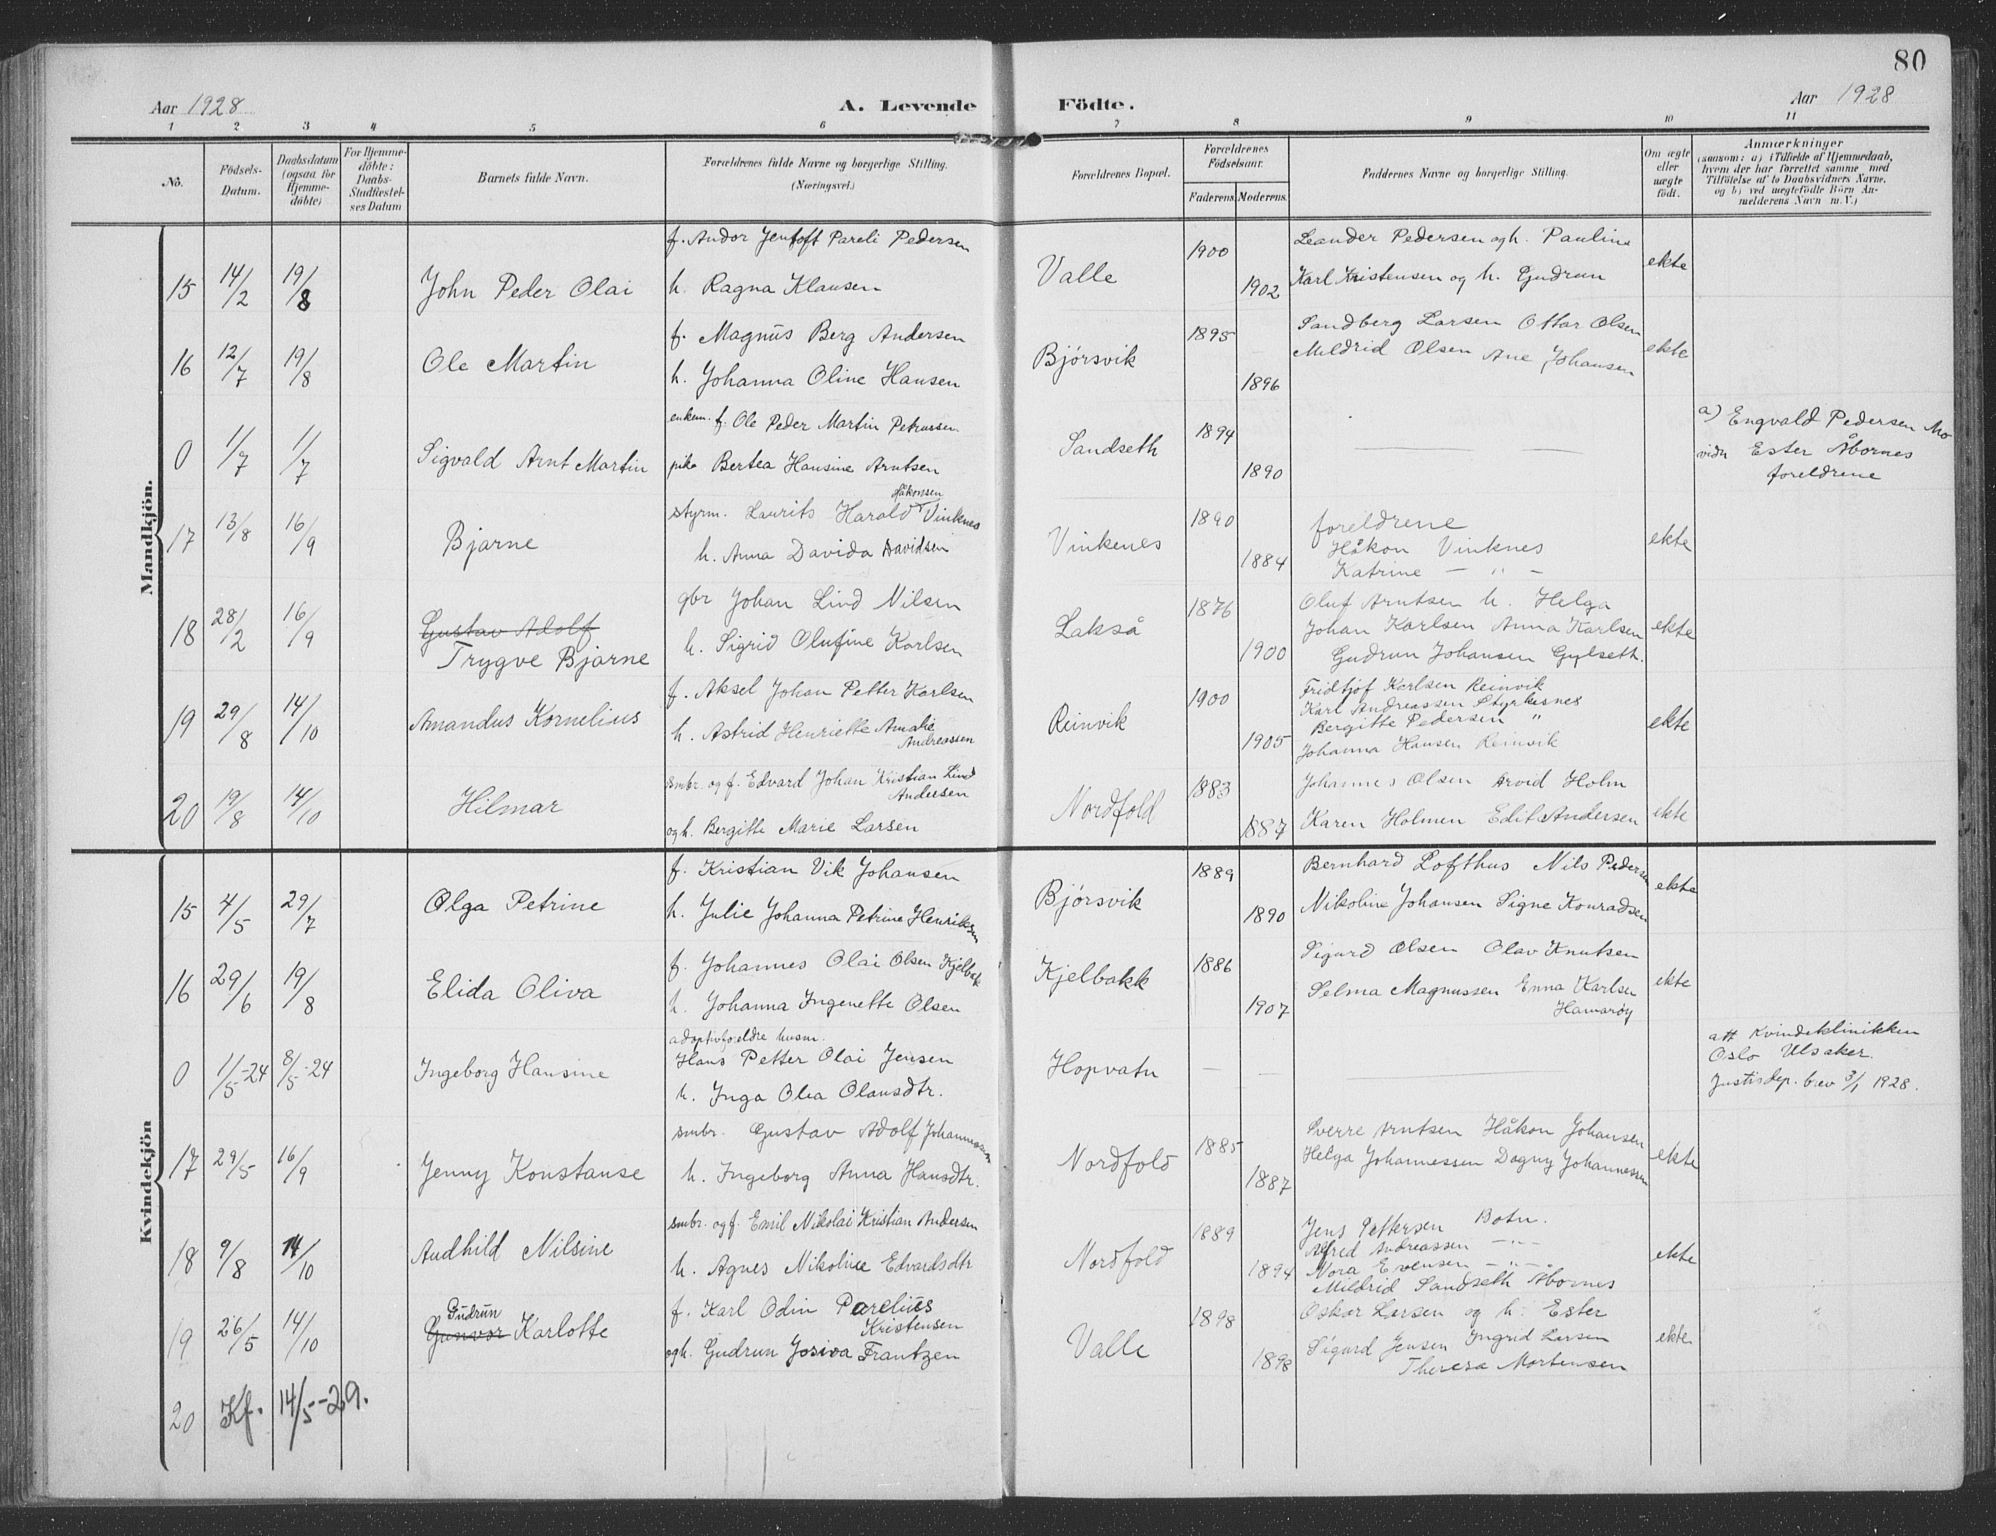 80
Aar 1928 A. Levende Födte. Aar 1928
1 2 3 4 5 6 7 8 9 10 11
No.
Födsels-
Datum.
Daabsdatum
(ogsaa for
Hjemme-
döbte)
For Hjemme-
döbte:
Daabs-
Stadfæstel-
ses Datum
Barnets fulde Navn.
Forældrenes fulde Navne og borgerlige Stilling.
(Næringsvei.)
Forældrenes Bopæl.
Forældrenes
Födselsaar.
Faderens. Moderens.
Faddernes Navne og borgerlige Stilling.
Om ægte
eller
uægte
födt.
Anmærkninger
(saasom: a) i Tilfælde af Hjemmedaab,
hvem der har forrettet samme med
Tilföielse af to Daabsvidners Navne,
og b) ved uægtefödte Börn An-
melderens Navn m. V.)
Mandkjön.
15 14/2 19/8 John Peder Olai
f. Andor Jentoft Pareli Pedersen
h. Ragna Klausen
Valle 1900 1902
Leander Pedersen og h. Paulina
Karl Kristensen og h. Gudrun
ekte
16 12/7 19/8 Ole Martin
f. Magnus Berg Andersen
h. Johanna Oline Hansen
Bjørsvik 1895 1896
Sandberg Larsen Ottar Olsen
Meldrid Olsen Ane Johansen
ekte
0 1/7 1/7 Sigvald Arnt Martin
enkem. f. Ole Peder Martin Petrussen
pike Bertea Hansine Arntsen
Sandseth 1894 1890
— —
a) Engvald Pedersen Mo
vidn Ester Åbornes
foreldrene
17 13/8 16/9 Bjarne
Håkonsen
styrm. Laurits Harald Vinknes
h. Anna Davida Davidsen
Vinkenes 1890 1884
foreldrene
Håkon Vinknes
Katrine — " —
ekte
18 28/2 16/9 Gustav Adolf
Trygve Bjarne
gbr Johan Lind Nilsen
h. Sigrid Olufine Karlsen
Lakså 1876 1900
Oluf Arntsen h. Helga
Johan Karlsen Anna Karlsen
Gudrun Johansen Gylseth.
ekte
19 29/8 14/10 Amandus Kornelius
f. Aksel Johan Petter Karlsen
h. Astrid Henriette Amalie
Andreassen
Reinvik 1900 1905
Fridtjof Karlsen Reinvik
Karl Andreassen Styrkesnes
Bergitte Pedersen "
Johanna Hansen Reinvik
ekte
20 19/8 14/10 Hilmar
smbr. og f. Edvard Johan Kristian Lind
Andersen
og h. Bergitte Marie Larsen
Nordfold 1883 1887
Johannes Olsen Arvid Holm
Karen Holmen Edit Andersen
ekte
Kvindekjön
15 4/5 29/7 Olga Petrine
f. Kristian Vik Johansen
h. Julie Johanna Petrine Henriksen
Bjørsvik 1889 1890
Bernhard Lofthus Nils Pedersen
Nikoline Johansen Signe Konradsen
ekte
16 29/6 19/8 Elida Oliva
f. Johannes Olai Olsen Kjelbakk
h. Johanna Ingenette Olsen
Kjelbakk 1886 1907
Sigurd Olsen Olav Knutsen
Selma Magnussen Enna Karlsen
Hamarøy
ekte
0 1/5-24 8/5-24 Ingeborg Hansine
adoptivforeldre husm.
Hans Petter Olai Jensen
h. Inga Olea Olausdtr.
Hopvatn — — —
att Kvindeklinikken
Oslo Ulsaker.
Justisdep. brev 3/1 1928.
17 29/5 16/9 Jenny Konstanse
smbr. Gustav Adolf Johannessen
h. Ingeborg Anna Hansdtr.
Nordfold 1885 1887
Sverre Arntsen Håkon Johansen
Helga Johannessen Dagny Johannessen
ekte
18 9/8 14/10 Audhild Nilsine
smbr. og f. Emil Nikolai Kristian Andersen
h. Agnes Nikoline Edvardsdtr
Nordfold 1889 1894
Jens Pettersen Botn.
Alfred Andreassen — " —
Nora Evensen — " —
Mildrid Sandseth Åbornes
ekte
19 26/5 14/10 Gudrun
Gunvor Karlotte
f. Karl Odin Parelius
Kristensen
og h. Gudrun Josiva Frantzen
Valle 1898 1898
Oskar Larsen og h. Ester
Sigurd Jensen Ingrid Larsen
Theresa Mortensen
ekte
20 Kf. 14/5-29.